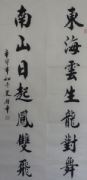 東海雲生龍對舞
南山日起鳳雙飛